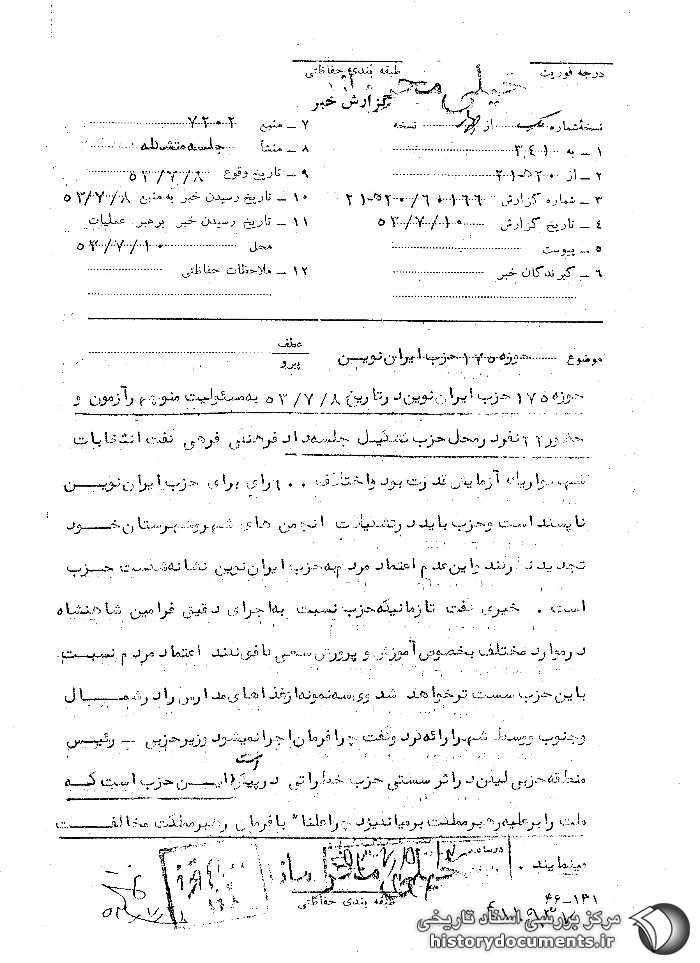 درجه فوریت
طبقه بندی حفاظتی
خیلی محرمانه
گزارش خبر
نسخه شماره یک از چهار نسخه
۱ – به ۳۴۱
۲ – از ۲۱ ه‍ ۵۲۰
۳ – شماره گزارش ۲۱ ه‍ ۵۲۰/۶۰۱۶۶
۴ – تاریخ گزارش ۵۳/۷/۱۰
۵ – پیوست
۶ – گیرندگان خبر
۷ – منبع ۷۲۰۲
۸ – منشأ جلسه متشکله
۹ – تاریخ وقوع ۵۳/۷/۸
۱۰ – تاریخ رسیدن خبر به منبع ۵۳/۷/۸
۱۱ – تاریخ رسیدن خبر برهبر عملیات
محل ۵۳/۷/۱۰
۱۲ – ملاحظات حفاظتی
موضوع حوزه ۱۷۵ حزب ایران نوین
عطف
پیرو
حوزه ۱۷۵ حزب ایران نوین در تاریخ ۵۳/۷/۸ به مسئولیت منوچهر آزمون و
حضور ۲۲ نفر در محل حزب تشکیل جلسه داد فرهنگی فرهی گفت انتخابات
شهسوار یک آزمایش قدرت بود و اختلاف ۶۰۰ رای برای حزب ایران نوین
ناپسند است وحزب باید در تشکیلات انجمن های شهر وشهرستان خود
تجدید نظر کند واین عدم اعتماد مردم به حزب ایران نوین نشانه شکست حزب
است . خیری گفت تا زمانیکه حزب نسبت به اجرای دقیق فرامین شاهنشاه
در موارد مختلف بخصوص آموزش و پرورش سعی کافی نکند اعتماد مردم نسبت
با ین حزب سست تر خواهد شد وی سه نمونه از غذاهای مدارس را در شمال
وجنوب ووسط شهر ارائه کرد وگفت چرا فرمان اجرا نمیشود وزیر حزبی – رئیس
منطقه حزبی لیکن در اثر سستی حزب خطراتی در پیش است این حزب است که
ملت را بر علیه رهبر مملکت بر میانگیزد چرا علنا" با فرمان رهبر مملکت مخالفت
مینمایند .
خیلی محرمانه
طبقه بندی حفاظتی
۴۶–۱۳۱
مرکز بررسی اسناد تاریخی
historydocuments.ir